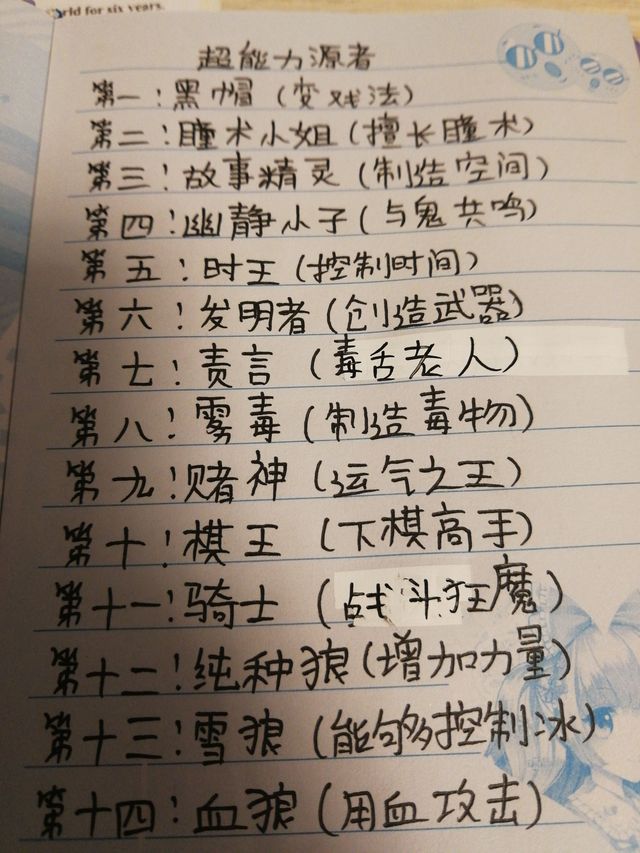 rld for six years.
超能力源者
第一！黑帽（变戏法）
第二！瞳术小姐（擅长瞳术）
第三！故事精灵（制造空间）
第四！幽静小子（与鬼共鸣）
第五！时王（控制时间）
第六！发明者（创造武器）
第七！责言（毒舌老人）
第八！雾毒（制造毒物）
第九！赌神（运气之王）
第十！棋王（下棋高手）
第十一！骑士（战斗狂魔）
第十二！纯种狼（增加力量）
第十三！雪狼（能够控制冰）
第十四！血狼（用血攻击）